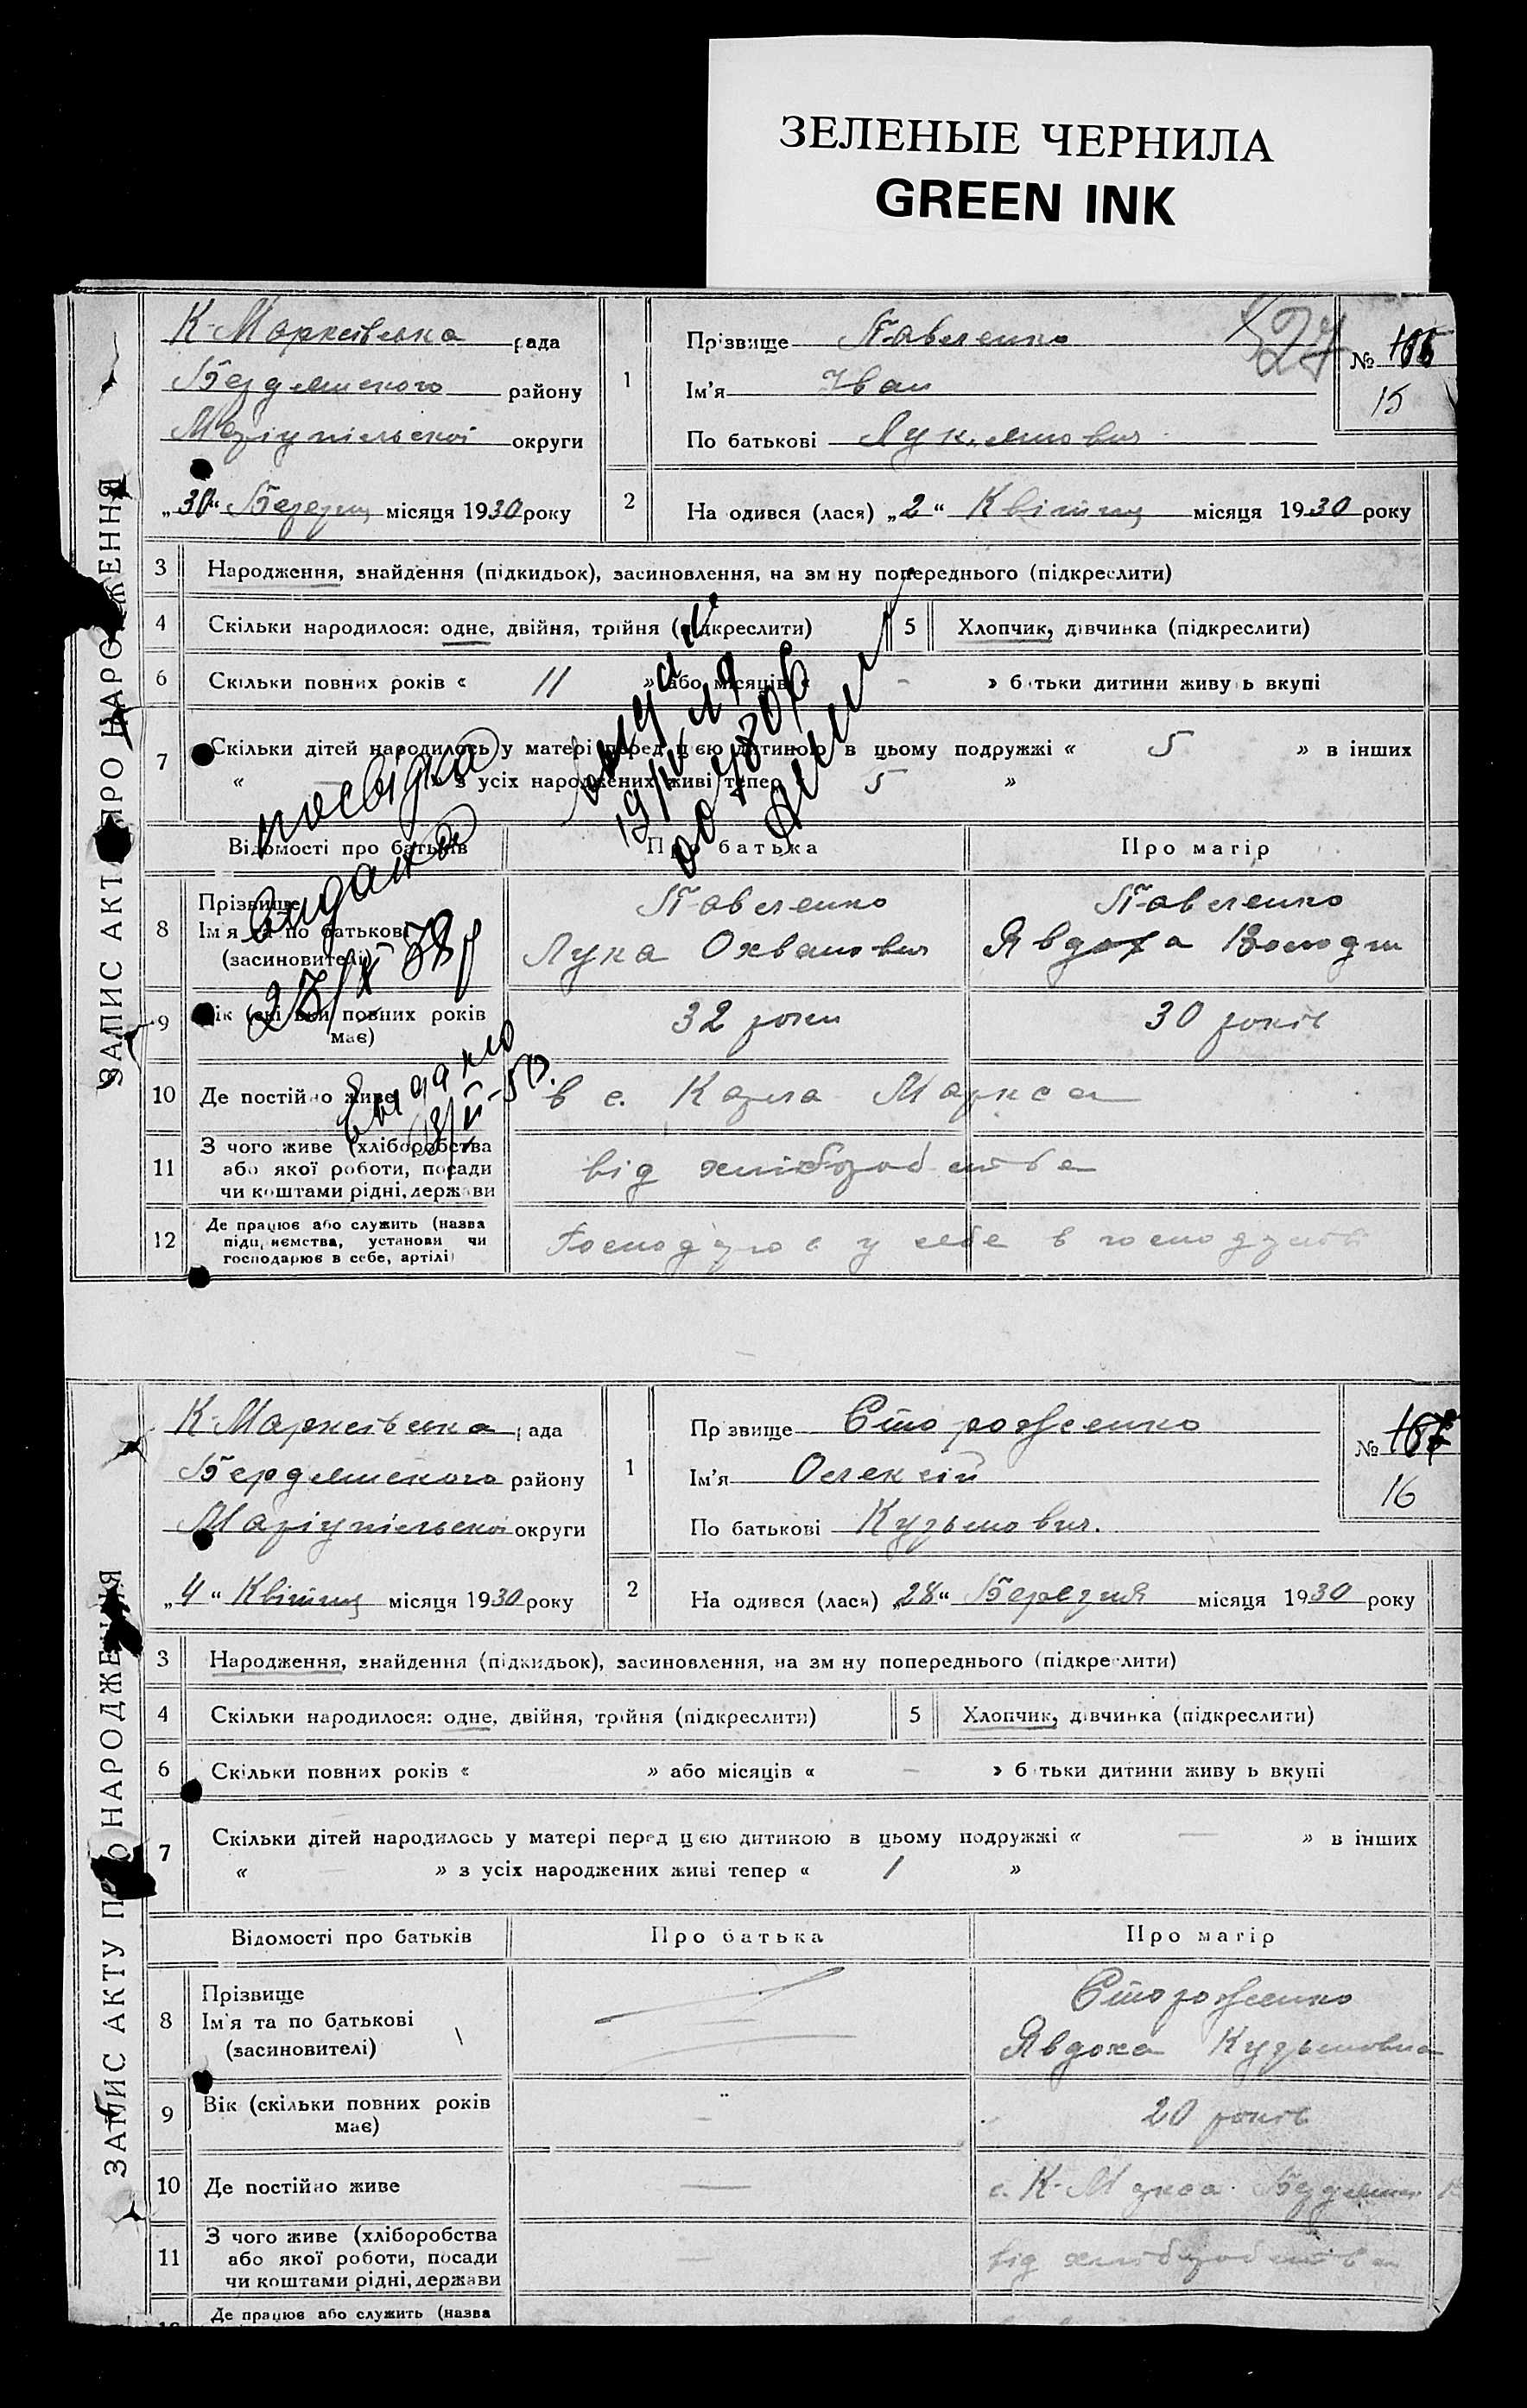 ЗЕЛЕНЫЕ ЧЕРНИЛА
GREEN INK
ЗАПИС АКТУ ПРО НАРОДЖЕННЯ
К-Марксівська рада
Бердянського району
Маріупільської округи
„30“ Березня місяця 1930 року
1
Прізвище Павленко
Ім'я Іван
По батькові
527
№
15
2
На одився (лася) „2“ Квітня місяця 1930 року
3 Народження, знайдення (підкидьок), засиновлення, на зм ну попереднього (підкреслити)
4 Скільки народилося: одне, двійня, трійня (підкреслити) 5 Хлопчик, дівчинка (підкреслити)
6 Скільки повних років « 11 » або місяців « - » б тьки дитини живу ь вкупі
7 Скільки дітей народилось у матері перед цією дитиною в цьому подружжі « 5 » в інших
« з усіх народжених живі тепер 5 »
посвідка
видана
Відомості про батьків Про батька Про матір
8 Прізвище
Ім'я та по батькові
(засиновителі)
Павленко
Лука
Павленко
Явдоха
9 Вік (скільки повних років
має)
32 роки
30 років
10 Де постійно живе
в с. Карла Маркса
11 З чого живе (хліборобства
або якої роботи, посади
чи коштами рідні, держави
від хліборобства
12 Де працює або служить (назва
підприємства, установи чи
господарює в себе, артілі)
у себе в
ЗАПИС АКТУ ПРО НАРОДЖЕННЯ
К-Марксівська рада
Бердянського району
Маріупільської округи
„4“ Квітня місяця 1930 року
1
Пр звище Стороженко
Ім'я Олексій
По батькові Кузьмович.
№
16
2
На одився (лася) „28“ Березня місяця 1930 року
3 Народження, знайдення (підкидьок), засиновлення, на зм ну попереднього (підкреслити)
4 Скільки народилося: одне, двійня, трійня (підкреслити) 5 Хлопчик, дівчинка (підкреслити)
6 Скільки повних років « » або місяців « — » б тьки дитини живу ь вкупі
7 Скільки дітей народилось у матері перед цією дитиною в цьому подружжі « — » в інших
« — » з усіх народжених живі тепер « 1 »
Відомості про батьків Про батька Про матір
8 Прізвище
Ім'я та по батькові
(засиновителі)
Стороженко
Явдоха Кузьмовна
9 Вік (скільки повних років
має)
20 років
10 Де постійно живе
с. К-Маркса
11 З чого живе (хліборобства
або якої роботи, посади
чи коштами рідні, держави
від хліборобства
Де працює або служить (назва